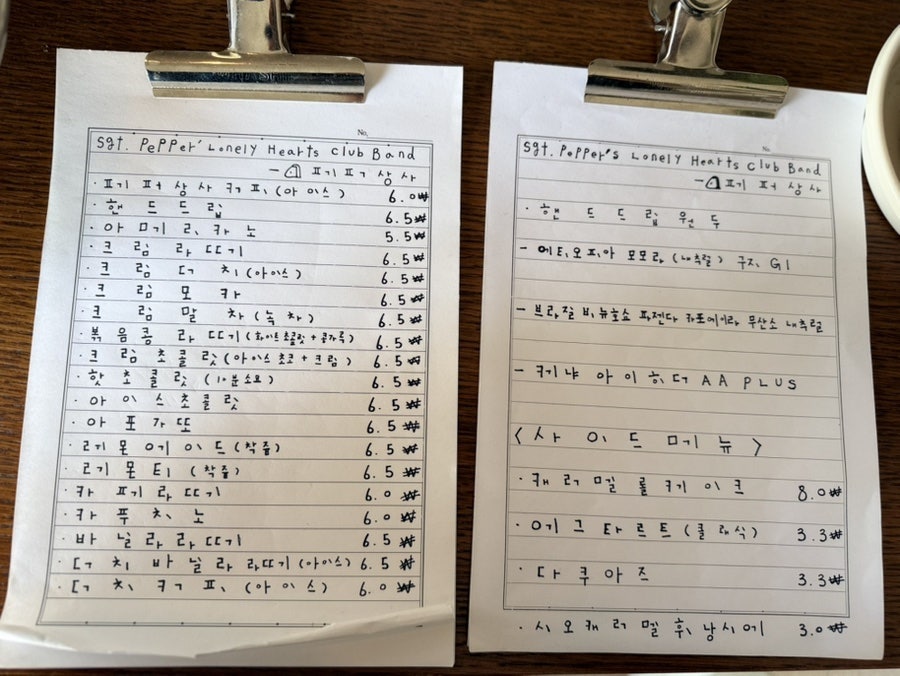 No.
Sgt. PePPer' Lonely Hearts Club Band
- 페퍼 상사
· 페퍼 상사 커피 (아이스) 6.0₩
· 핸드드립 6.5₩
· 아메리카노 5.5₩
· 크림라떼 6.5₩
· 크림더치 (아이스) 6.5₩
· 크림모카 6.5₩
· 크림말차 (녹차) 6.5₩
· 볶음콩라떼 (화이트초콜릿 + 콩가루) 6.5₩
· 크림초콜릿 (아이스 초코 + 크림) 6.5₩
· 핫초콜릿 (10분소요) 6.5₩
· 아이스초콜릿 6.5₩
· 아포가또 6.5₩
· 레몬에이드 (착즙) 6.5₩
· 레몬티 (착즙) 6.5₩
· 카페라떼 6.0₩
· 카푸치노 6.0₩
· 바닐라라떼 6.5₩
· 더치바닐라라떼 (아이스) 6.5₩
· 더치커피 (아이스) 6.0₩
No.
Sgt. PePPer's Lonely Hearts Club Band
- 페퍼 상사
· 핸드드립 원두
- 에티오피아 모모라 (내추럴) 구지 G1
- 브라질 비뉴호쇼 파젠다 카포에이라 무산소 내추럴
- 케냐 아이히더 AA PLUS
< 사이드 메뉴 >
· 캐러멜롤케이크 8.0₩
· 에그타르트 (클래식) 3.3₩
· 다쿠아즈 3.3₩
· 시오캐러멜휘낭시에 3.0₩